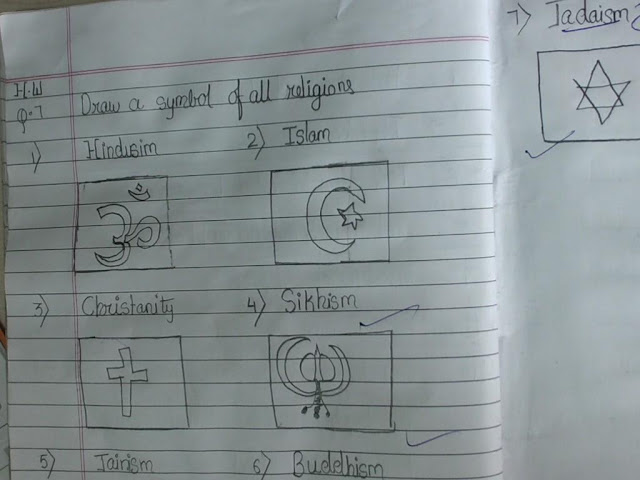 H.W
Q.7 Draw a symbol of all religions
1) Hindusim 2) Islam
3) Christanity 4) Sikhism
5) Jainism 6) Buddhism
7) Jadaism